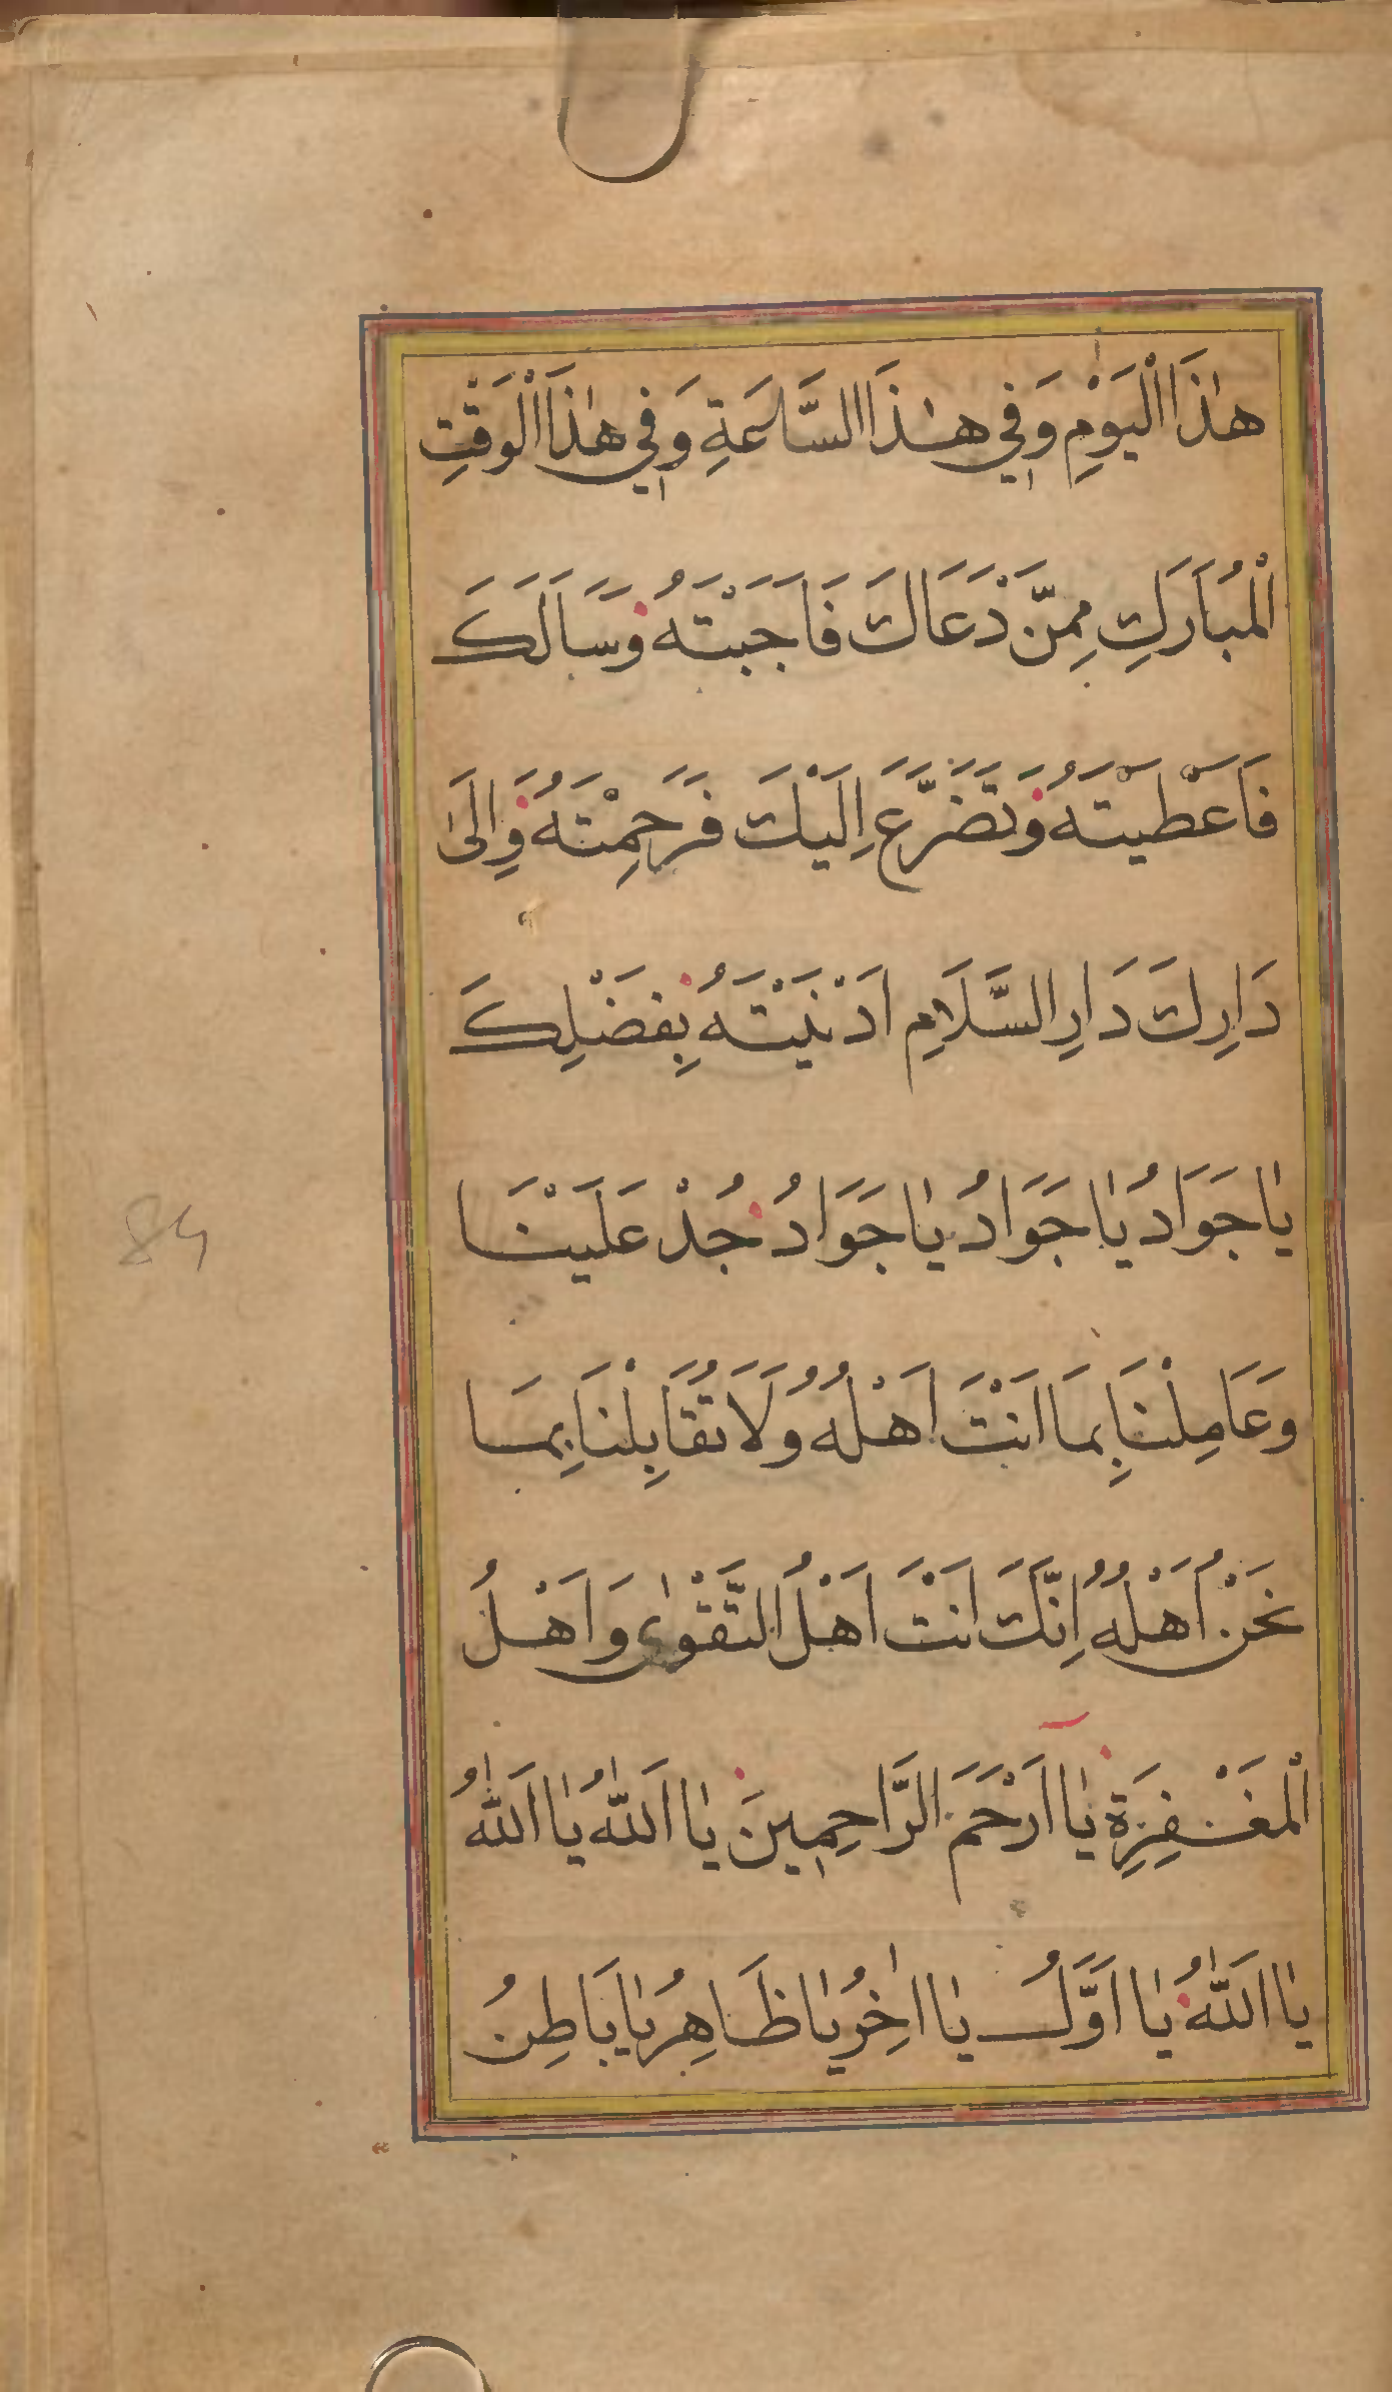 هٰذَا الْيَوْمِ وَفِي هٰذَا السَّاعَةِ وَفِي هٰذَا الْوَقْتِ
الْمُبَارَكِ مِمَّنْ دَعَاكَ فَاَجَبْتَهُ وَسَاَلَكَ
فَاَعْطَيْتَهُ وَتَضَرَّعَ اِلَيْكَ فَرَحِمْتَهُ وَاِلَىٰ
دَارِكَ دَارِ السَّلَامِ اَدْنَيْتَهُ بِفَضْلِكَ
يٰا جَوَادُ يٰا جَوَادُ يٰا جَوَادُ جُدْ عَلَيْنَا
وَعَامِلْنَا بِمَا اَنْتَ اَهْلُهُ وَلَا تُقَابِلْنَا بِمَا
نَحْنُ اَهْلُهُ اِنَّكَ اَنْتَ اَهْلُ التَّقْوٰى وَاَهْلُ
الْمَغْفِرَةِ يٰا اَرْحَمَ الرَّاحِمِينَ يٰا اَللّٰهُ يٰا اَللّٰهُ
يٰا اَللّٰهُ يٰا اَوَّلُ يٰا اٰخِرُ يٰا ظَاهِرُ يٰا بَاطِنُ
84